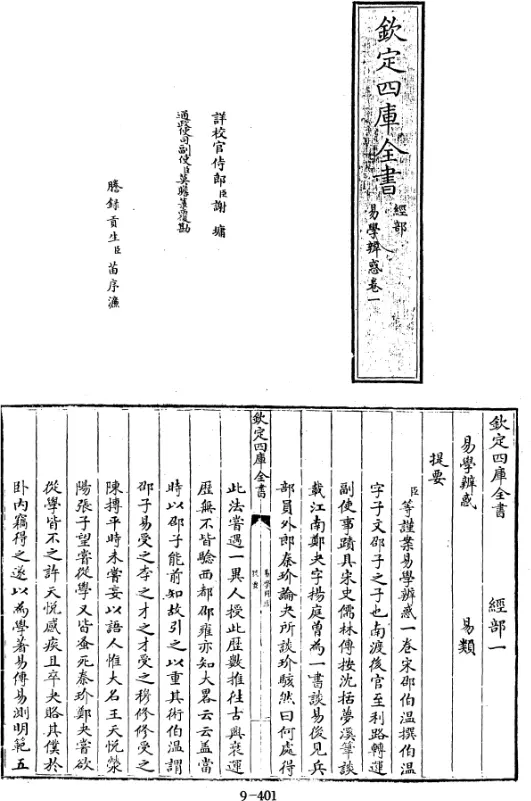 欽定四庫全書
經部
易學辨惑卷一
詳校官侍郎臣謝墉
通政使司副使臣莫瞻菉覆勘
謄錄貢生臣苗序濂
欽定四庫全書 經部一
易學辨惑 易類
提要
臣等謹案易學辨惑一卷宋邵伯溫撰伯溫
字子文邵子之子也南渡後官至利路轉運
副使事蹟具宋史儒林傳按沈括夢溪筆談
載江南鄭夬字揚庭曾為一書談易後見兵
部員外郎秦玠論夬所談玠駭然曰何處得
欽定四庫全書
易學辨惑
提要
此法嘗遇一異人授此歷數推往古興衰運
歷無不皆驗西都邵雍亦知大畧云云蓋當
時以邵子能前知故引之以重其術伯溫謂
邵子易受之李之才之才受之穆修修受之
陳摶平時未嘗妄以語人惟大名王天悅滎
陽張子望嘗從學又皆蚤死秦玠鄭夬嘗欲
從學皆不之許天悅感疾且卒夬賂其僕於
卧內竊得之遂以為學著易傳易測明範五
9-401